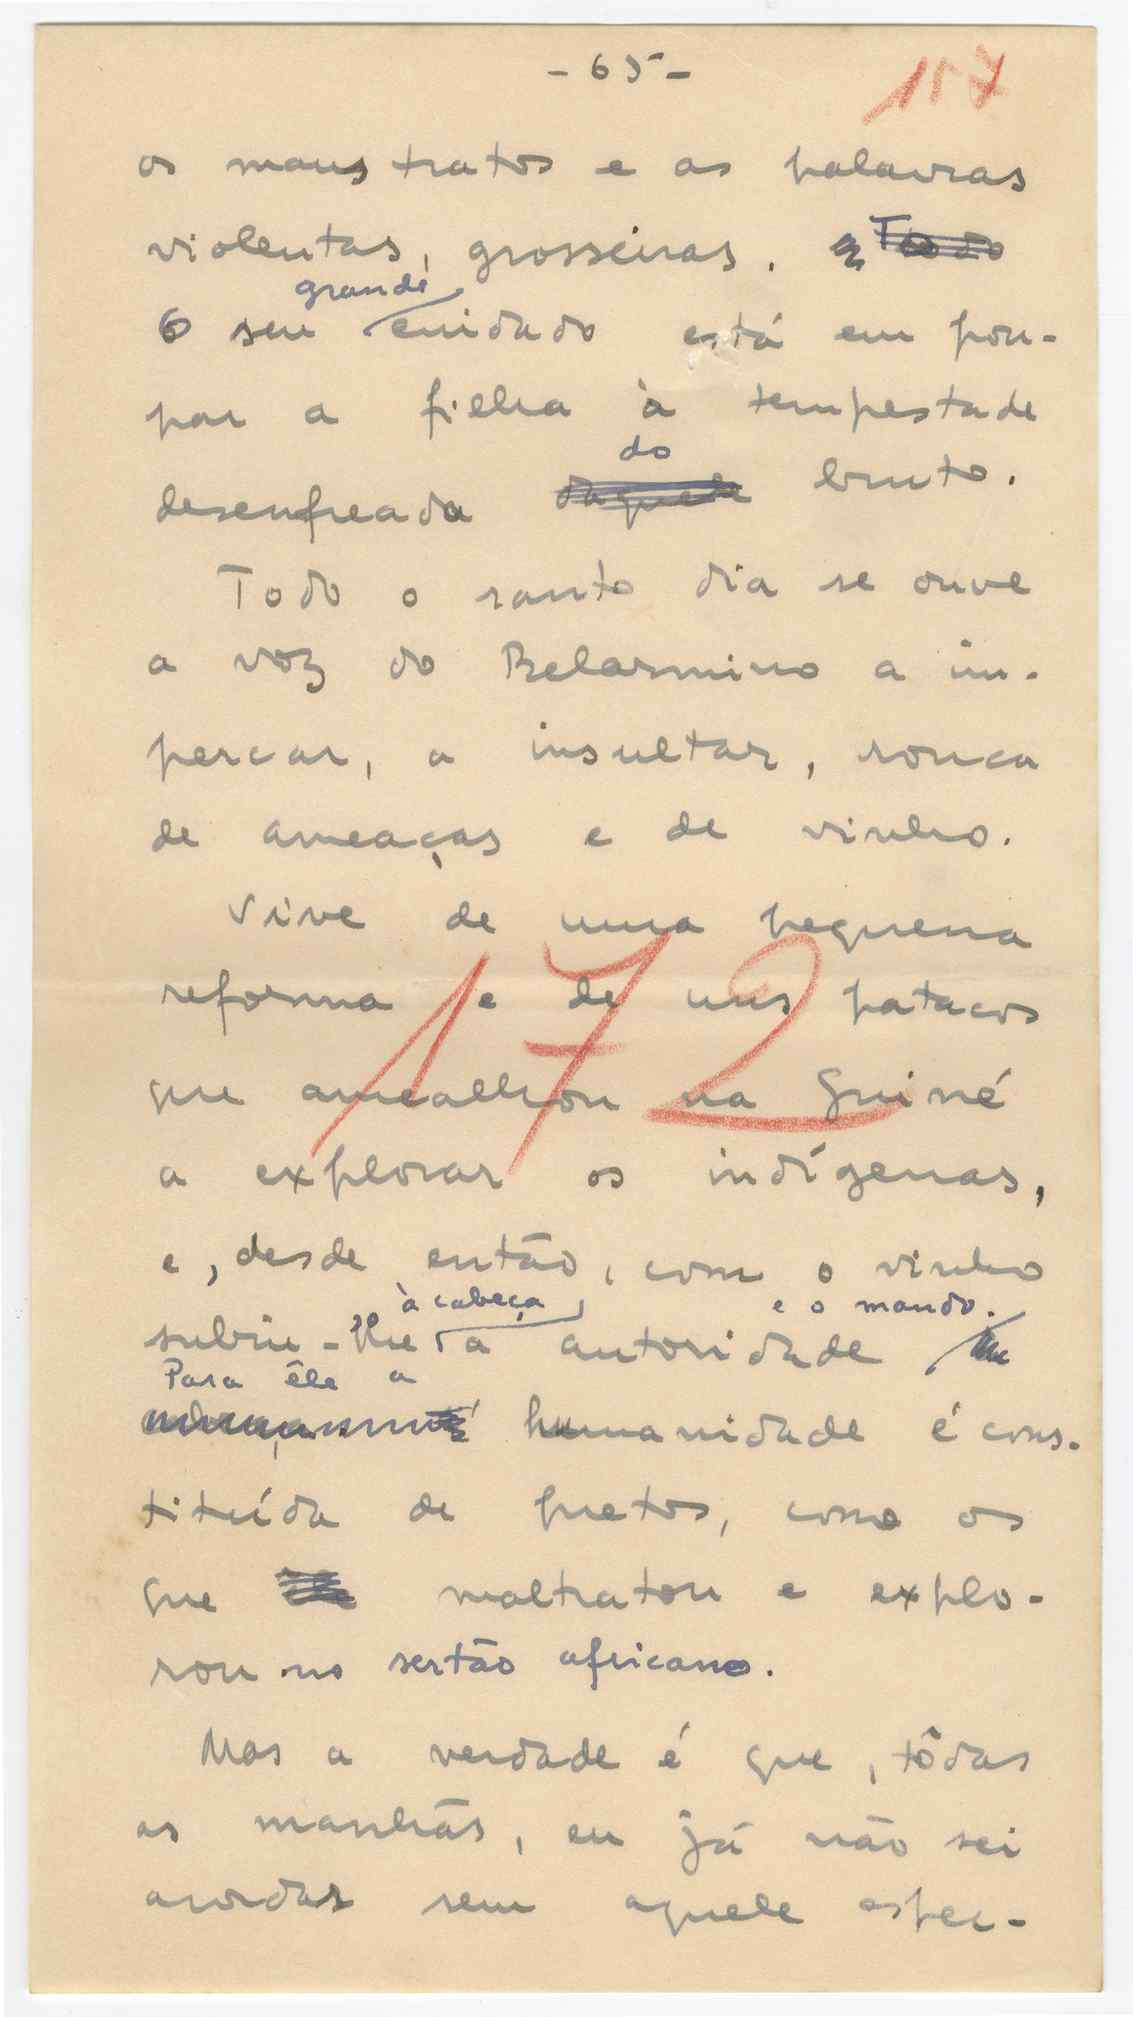 - 65 -
117
os maus tratos e as palavras
violentas, grosseiras. Todo
grande
O seu cuidado está em pou-
par a filha à tempestade
do
desenfreada daquele bruto.
Todo o santo dia se ouve
a voz do Belarmino a im-
percar, a insultar, rouca
de ameaças e de vinho.
Vive de uma pequena
reforma e de uns patacos
172
que amealhou na Guiné
a explorar os indígenas,
e, desde então, com o vinho
à cabeça e o mando.
subiu-lhe a autoridade
Para êle a
humanidade é cons-
tituída de pretos, como os
que maltratou e explo-
rou no sertão africano.
Mas a verdade é que, tôdas
as manhãs, eu já não sei
acordar sem aquele espec-